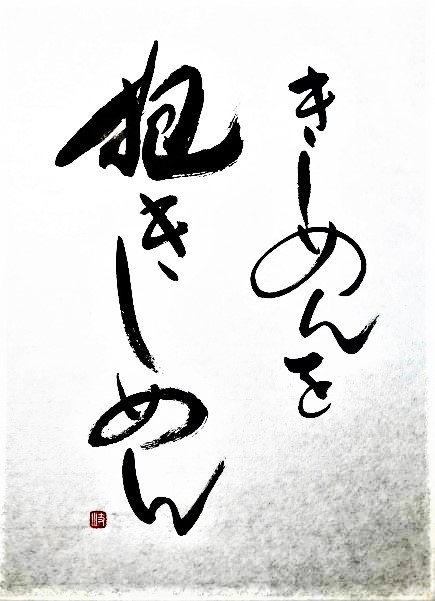 きしめんを
抱きしめん